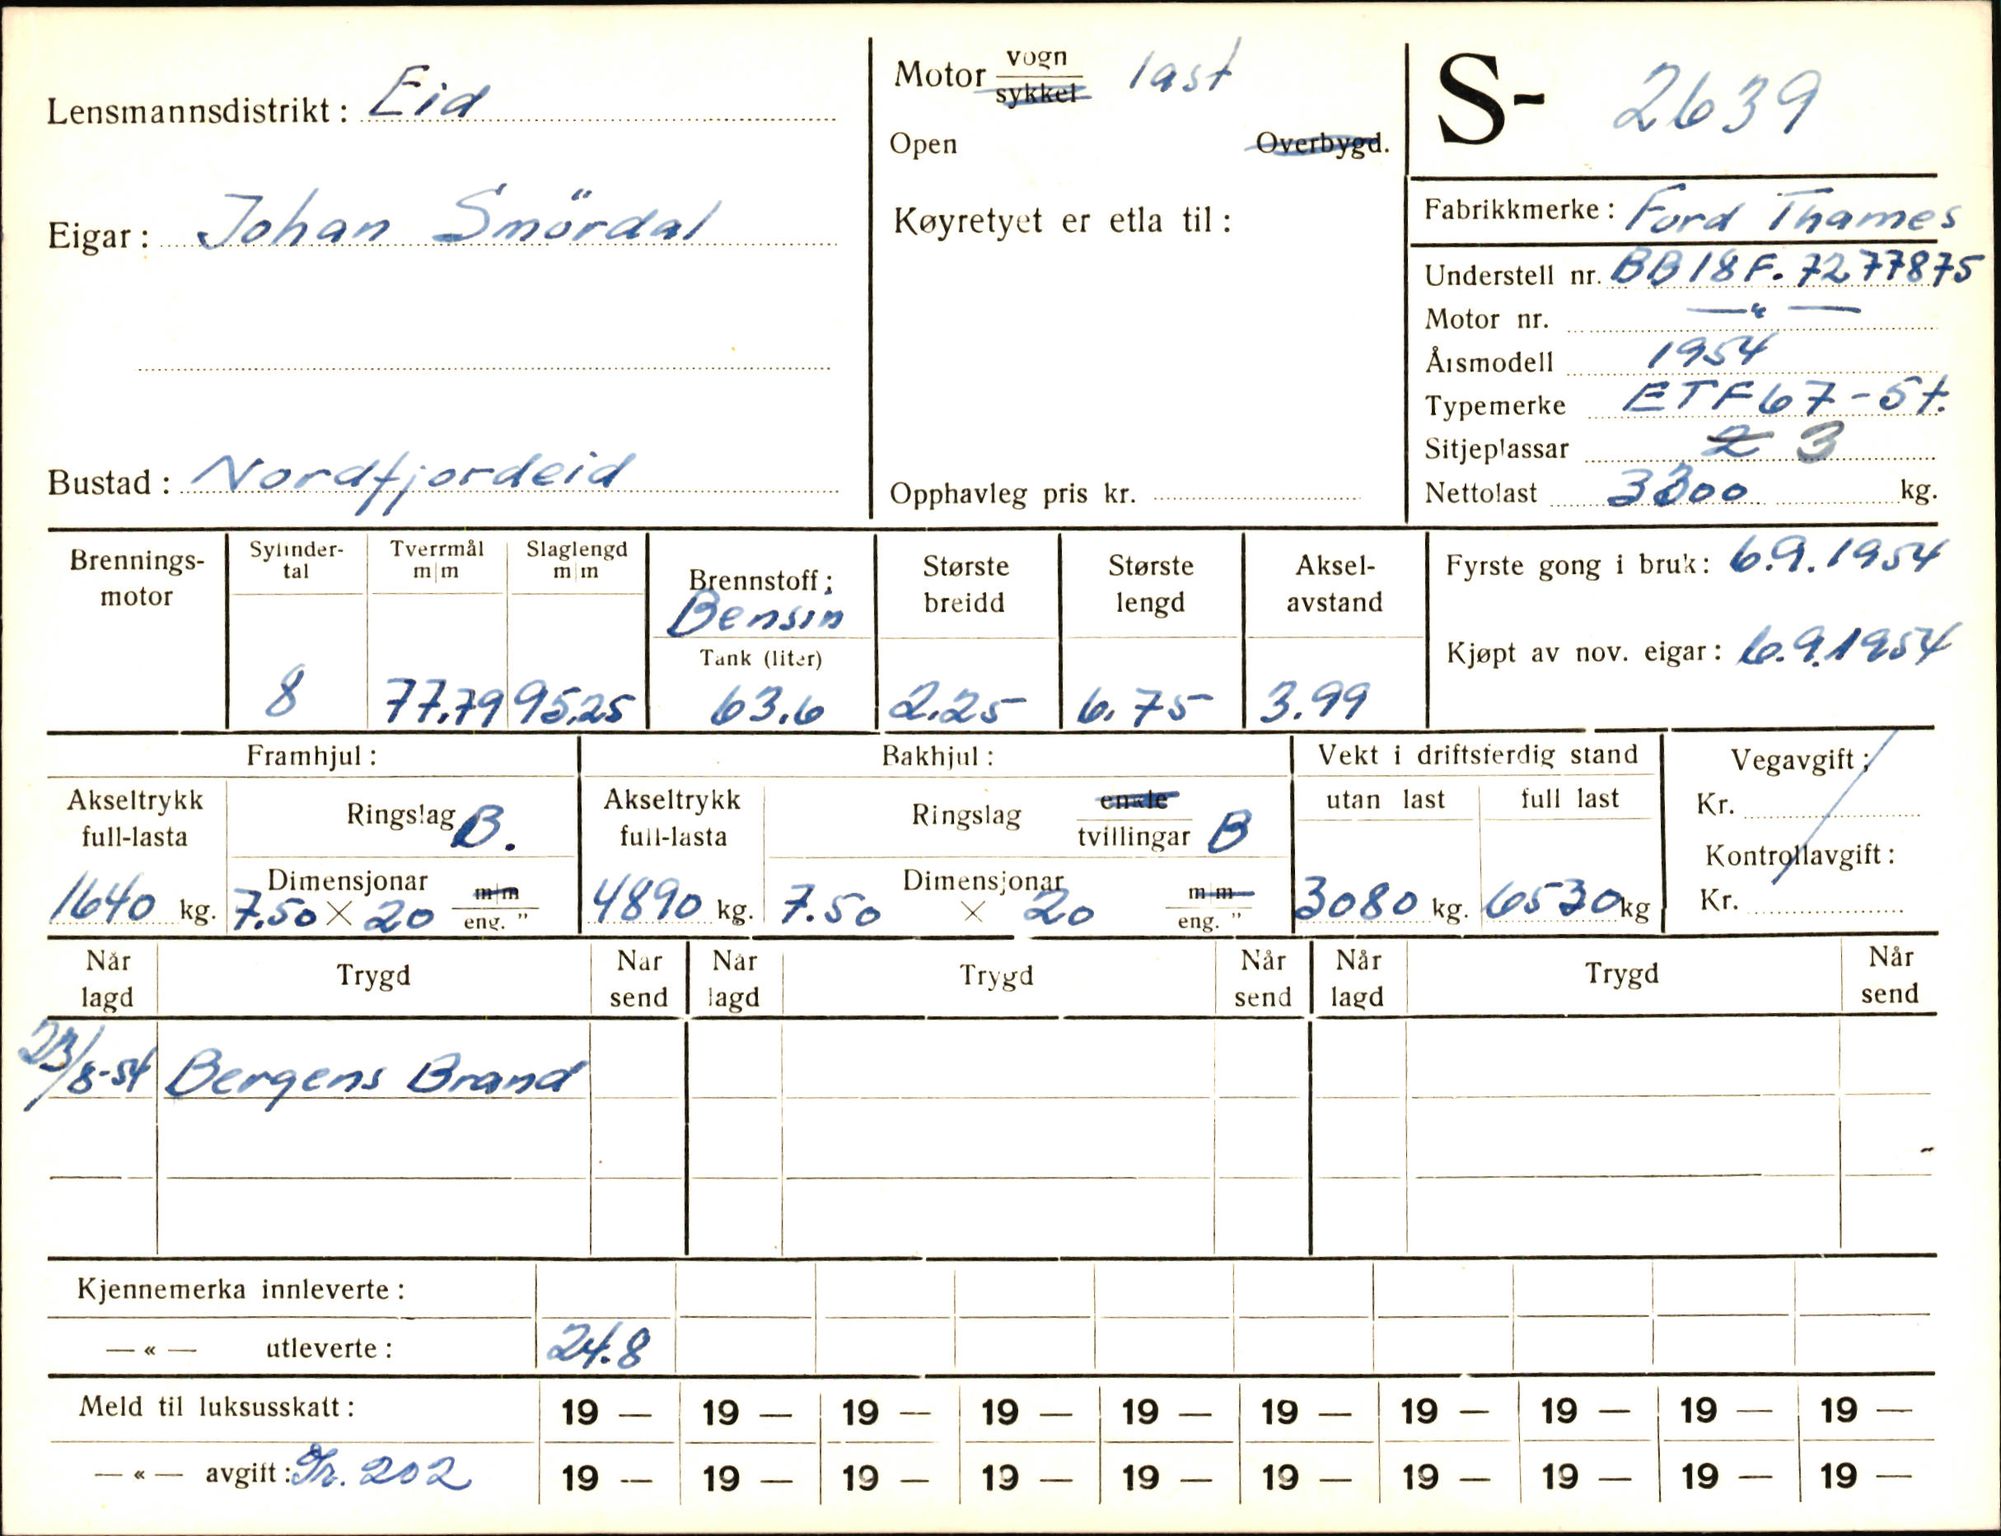 Lensmannsdistrikt: Eid
Eigar: Johan Smördal
Bustad: Nordfjordeid
Motor vogn last
sykkel
Open Overbygd.
Køyretyet er etla til:
Opphavleg pris kr.
S- 2639
Fabrikkmerke: Ford Thames
Understell nr. BB18F.7277875
Motor nr. — " —
Årsmodell 1954
Typemerke ETF67-5t.
Sitjeplassar 2 3
Nettolast 3300 kg.
Brennings-
motor
Sylinder-
tal
8
Tverrmål
m|m
77.79
Slaglengd
m|m
95.25
Brennstoff;
Bensin
Tank (liter)
63.6
Største
breidd
2.25
Største
lengd
6.75
Aksel-
avstand
3.99
Fyrste gong i bruk: 6.9.1954
Kjøpt av nov. eigar: 6.9.1954
Framhjul:
Akseltrykk
full-lasta
1640 kg.
Ringslag B.
Dimensjonar m|m
7.50 × 20 eng. "
Bakhjul:
Akseltrykk
full-lasta
4890 kg.
Ringslag enkle
tvillingar B
Dimensjonar m|m
7.50 × 20 eng. "
Vekt i driftsferdig stand
utan last full last
3080 kg. 6530 kg
Vegavgift;
Kr.
Kontrollavgift:
Kr.
Når
lagd Trygd Når
send Når
lagd Trygd Når
send Når
lagd Trygd Når
send
23/8-54 Bergens Brand
Kjennemerka innleverte:
— « — utleverte: 24.8
Meld til luksusskatt: 19 — 19 — 19 — 19 — 19 — 19 — 19 — 19 — 19 — 19 —
— « — avgift: Gr. 202 19 — 19 — 19 — 19 — 19 — 19 — 19 — 19 — 19 — 19 —